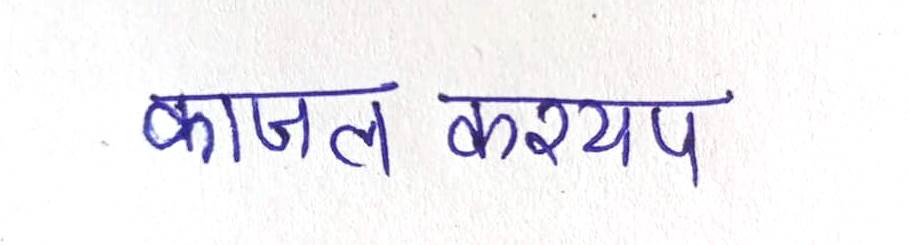 काजल कश्यप